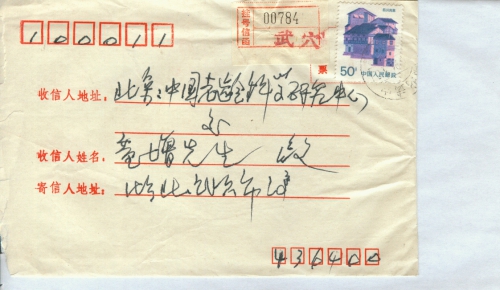 挂号信函 00784
武穴
50分 中国人民邮政
票
100011
收信人地址: 北京:中国老龄科学研究中心
收信人姓名: 先生 收
寄信人地址: 湖北武穴市
436400